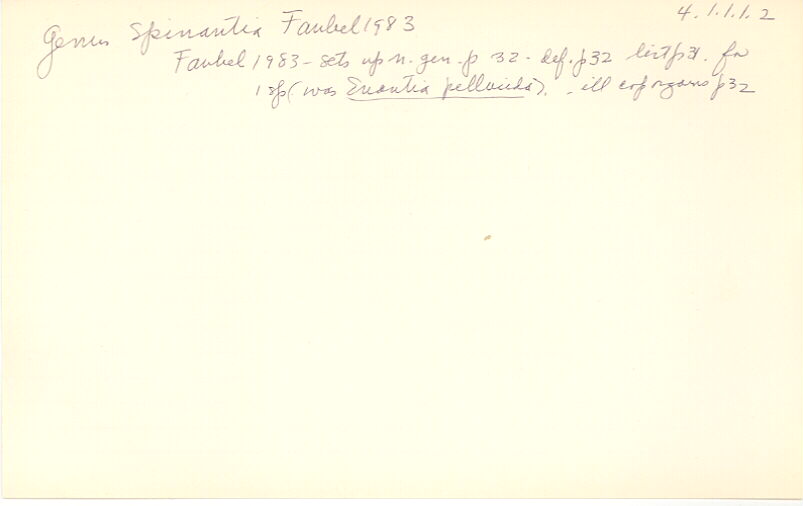 4.1.1.1.2
Genus Spinantia Faubel 1983
Faubel 1983 - sets up n. gen. p 32. def. p32 list p31. for
1 sp (was Enantia pellucida). ill cop organs p32